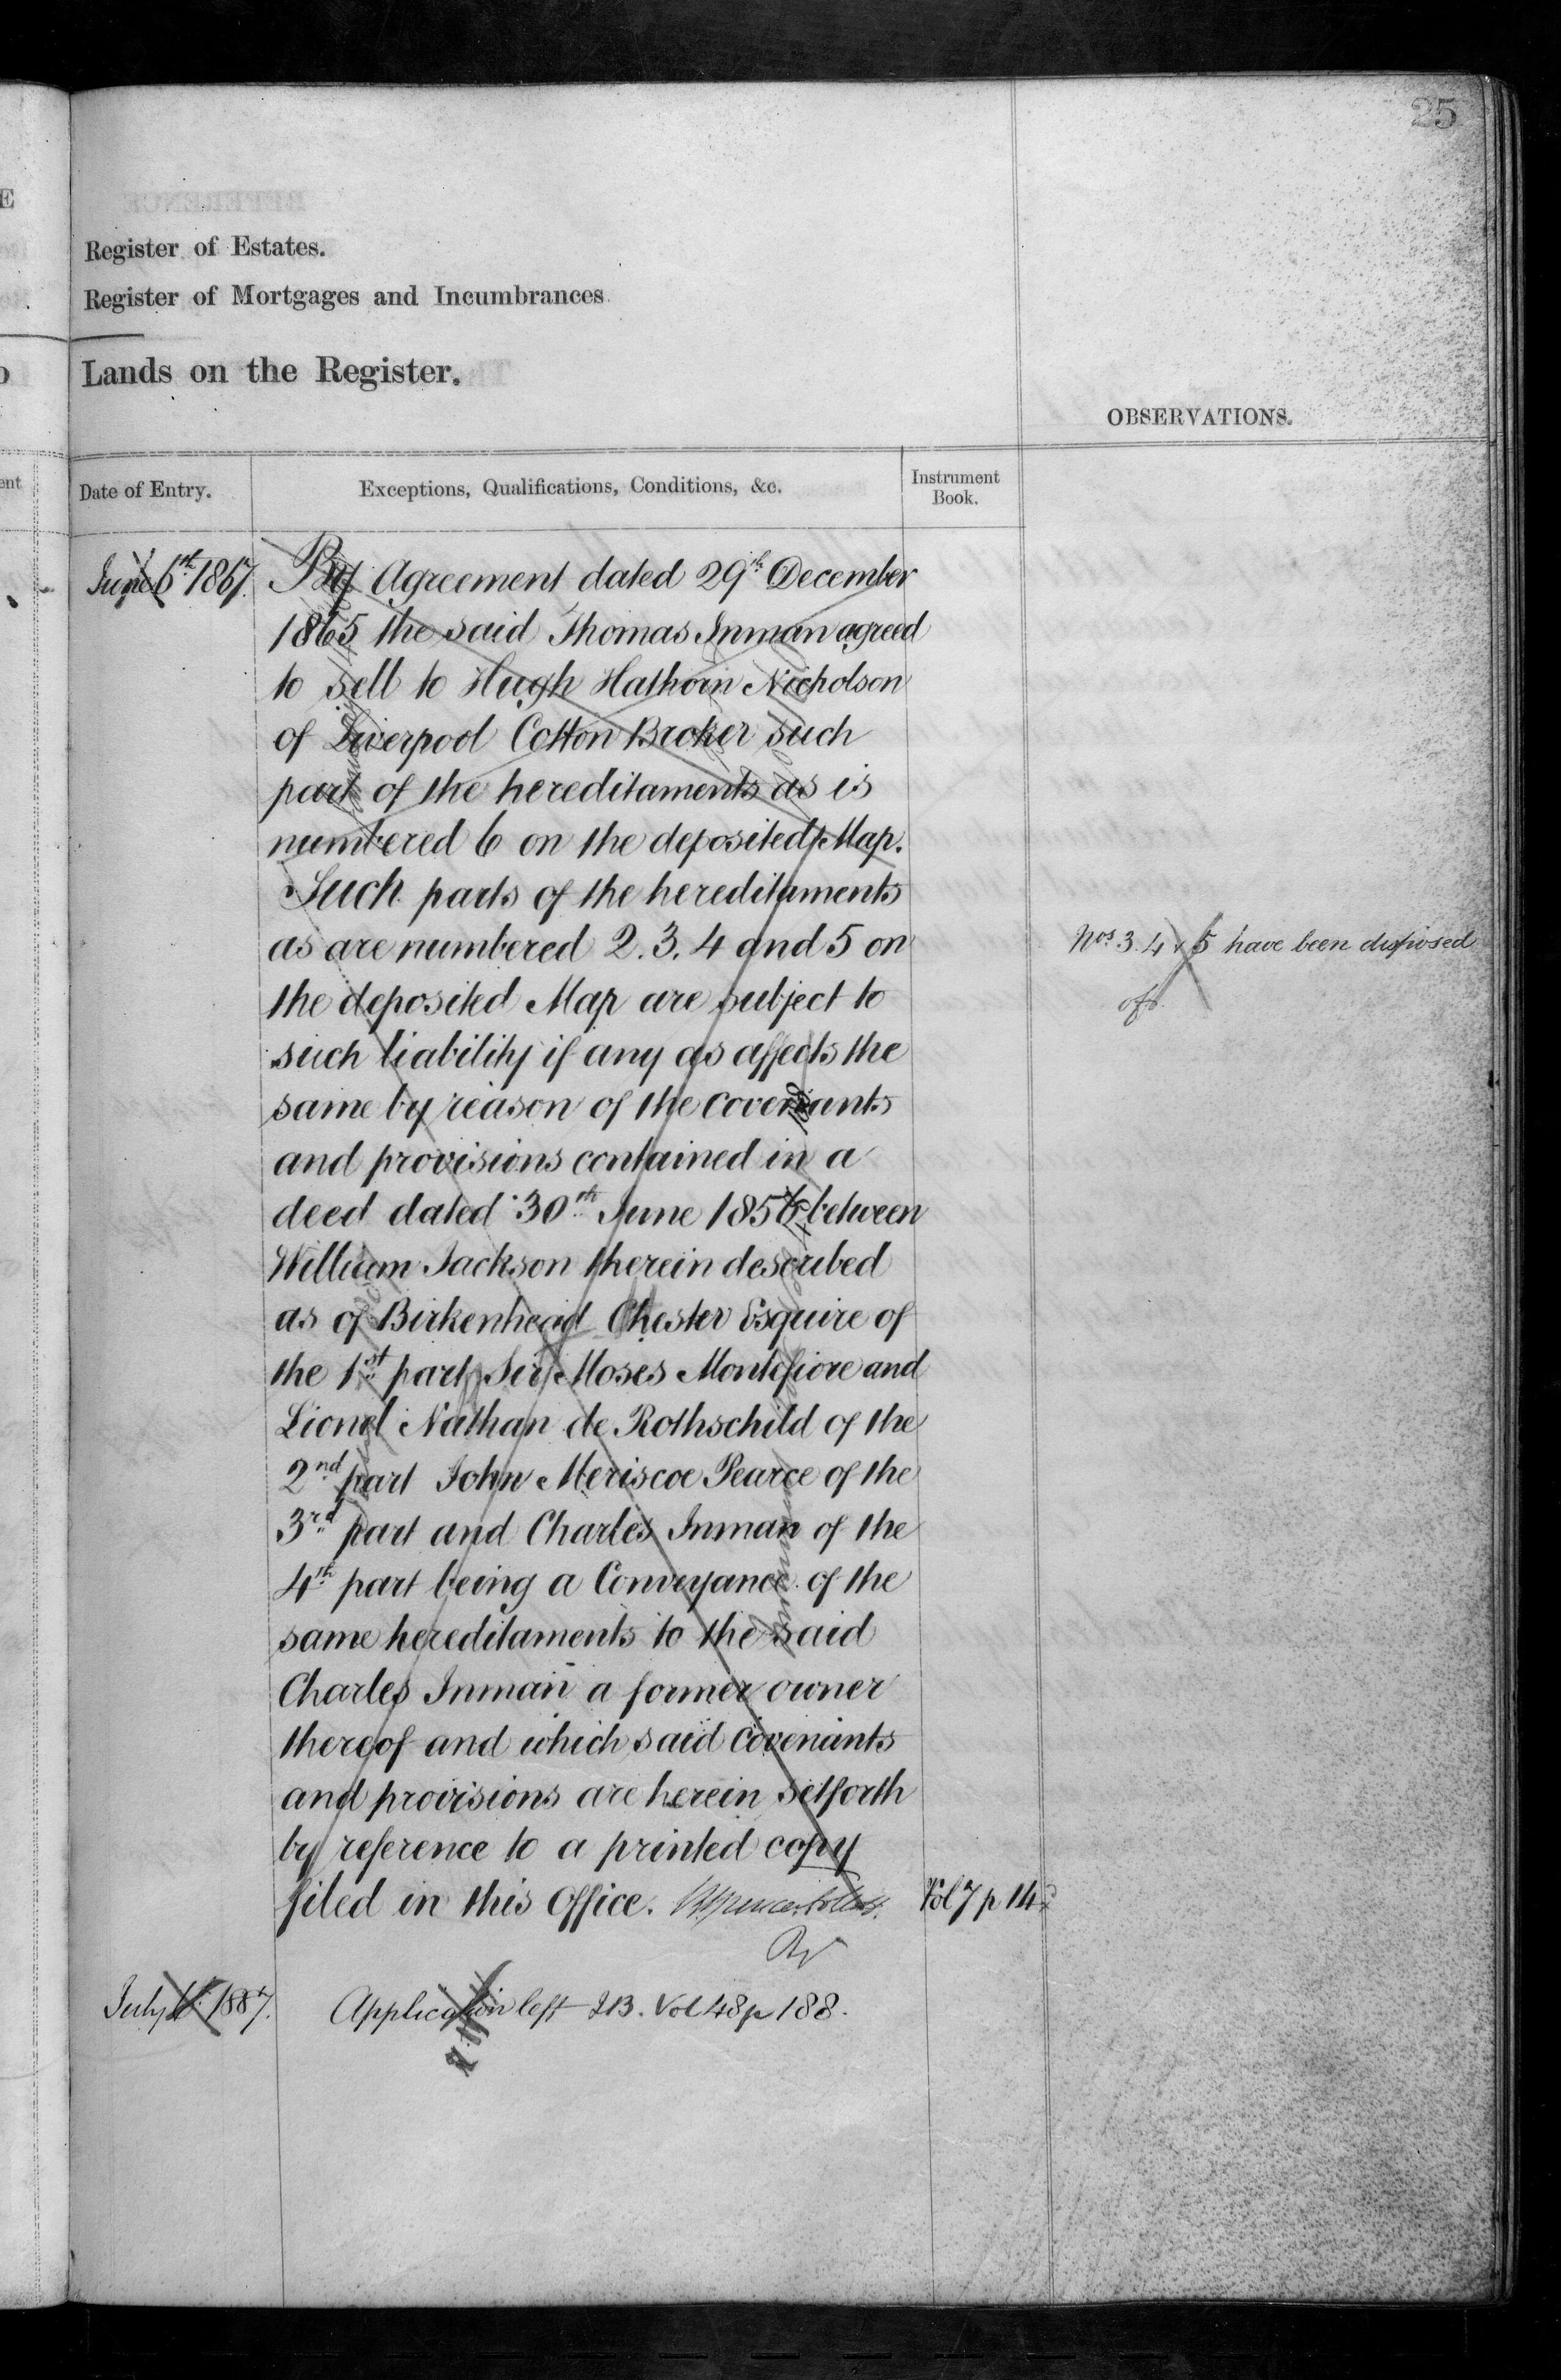 25
Register of Estates.
Register of Mortgages and Incumbrances
Lands on the Register.
OBSERVATIONS.
Date of Entry.
Exceptions, Qualifications, Conditions, &c.
Instrument
Book.
June 1867.
By Agreement dated 29th December
1865 the said Thomas Inman agreed
to sell to Hugh Hathorn Nicholson
of Liverpool Cotton Broker such
part of the hereditaments as is
numbered 6 on the deposited Map.
Such parts of the hereditaments
as are numbered 2. 3. 4 and 5 on
the deposited Map are subject to
such liability if any as affects the
same by reason of the covenants
and provisions contained in a
deed dated 30th June 1856 between
William Jackson therein described
as of Birkenhead Chester Esquire of
the 1st part Sir Moses Montefiore and
Lionel Nathan de Rothschild of the
2nd part John Meriscoe Pearce of the
3rd part and Charles Inman of the
4th part being a Conveyance of the
same hereditaments to the said
Charles Inman a former owner
thereof and which said covenants
and provisions are herein setforth
by reference to a printed copy
filed in this Office.
Vol 7 p 14
Nos 3. 4 & 5 have been disposed
of.
July 1887.
Application left IB. Vol 48 p 188.